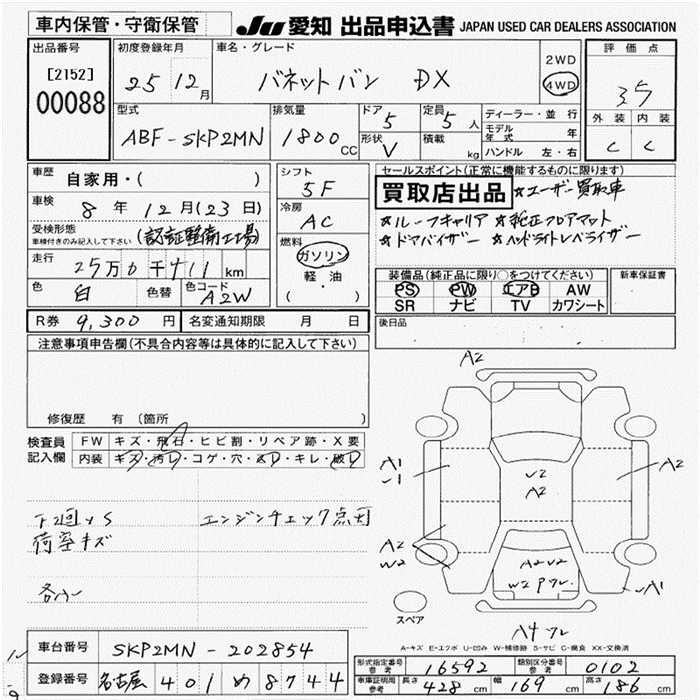 車内保管・守衛保管
JU 愛知 出品申込書 JAPAN USED CAR DEALERS ASSOCIATION
出品番号
[2152]
00088
初度登録年月
25 12月
車名・グレード
バネットバン DX
2WD
4WD
評価点
3.5
外装 内装
C C
型式
ABF-SKP2MN
排気量
1800 CC
ドア 5
形状 V
定員 5 人
積載 kg
ディーラー・並行
モデル年式 年
ハンドル 左・右
車歴
自家用・( )
車検
8年 12月(23日)
受検形態
車検付きのみ記入して下さい
(認証整備工場)
走行
25万6千 411 km
色 白 色替 色コード A2W
R券 9,300円 名変通知期限 月 日
シフト
5F
冷房
AC
燃料
ガソリン
軽・油
( )
セールスポイント(正常に機能するものに限ります)
買取店出品 ☆ユーザー買取車
☆ルーフキャリア ☆純正フロアマット
☆ドアバイザー ☆ヘッドライトレベライザー
装備品(純正品に限り○をつけてください)
PS PW エアB AW
SR ナビ TV カワシート
新車保証書
後日品
注意事項申告欄(不具合内容等は具体的に記入して下さい)
修復歴 有(箇所 )
検査員記入欄
FW キズ・飛石・ヒビ割・リペア跡・X要
内装 キズ・汚レ・コゲ・穴・スレ・キレ・破レ
下回りS エンジンチェック点灯
荷室キズ
各小
A2
A1
U2
A2
A2
A2
W2
A2 U2
W2
A1
A4
スペア
A-キズ E-エクボ U-凹み W-補修跡 S-サビ C-腐食 XX-交換済
車台番号 SKP2MN-202854
登録番号 名古屋 401 め 8744
形式指定番号 参考 16592 類別区分番号 参考 0102
車庫証明用 参考 長さ 428 cm 幅 169 cm 高さ 186 cm